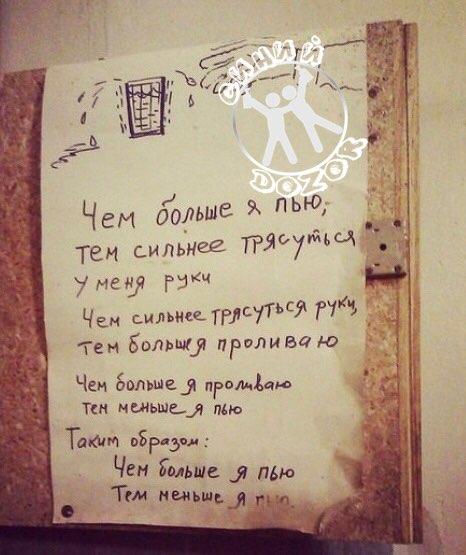 СИНИЙ
DOZOR
Чем больше я пью,
тем сильнее трясуться
у меня руки
Чем сильнее трясуться руки,
тем больше я проливаю
Чем больше я проливаю
тем меньше я пью
Таким образом:
Чем больше я пью
Тем меньше я пью.